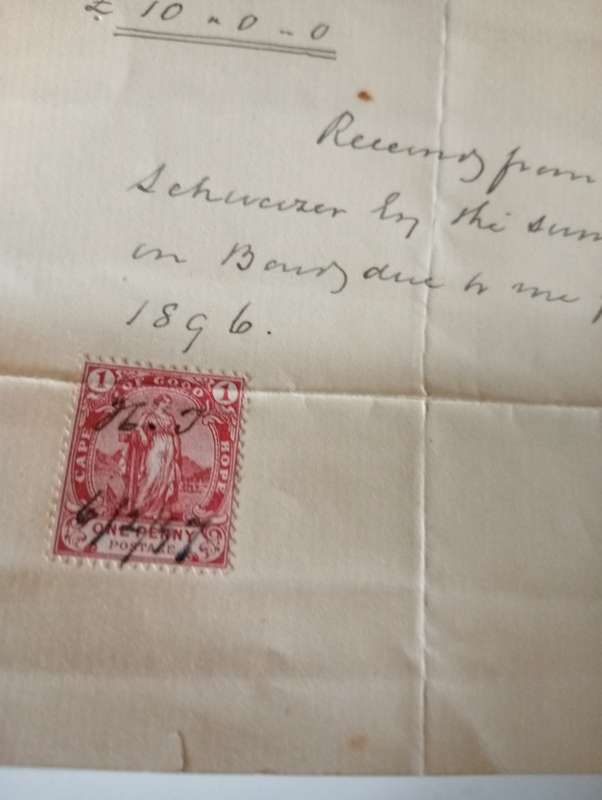 £ 10 " 0 " 0
Received from
Schweizer Esq the sum
on Bond due to me
1896.
1 OF GOOD 1
CAPE HOPE
ONE PENNY
POSTAGE
6/2/97